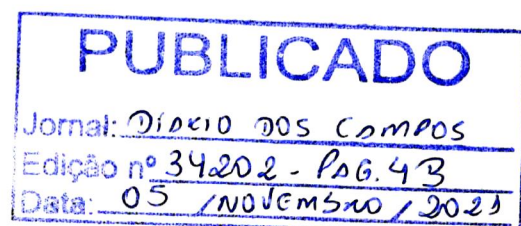 PUBLICADO
Jornal: DIÁRIO DOS CAMPOS
Edição nº 34202 - PAG. 4B
Data: 05 / NOVEMBRO / 2021